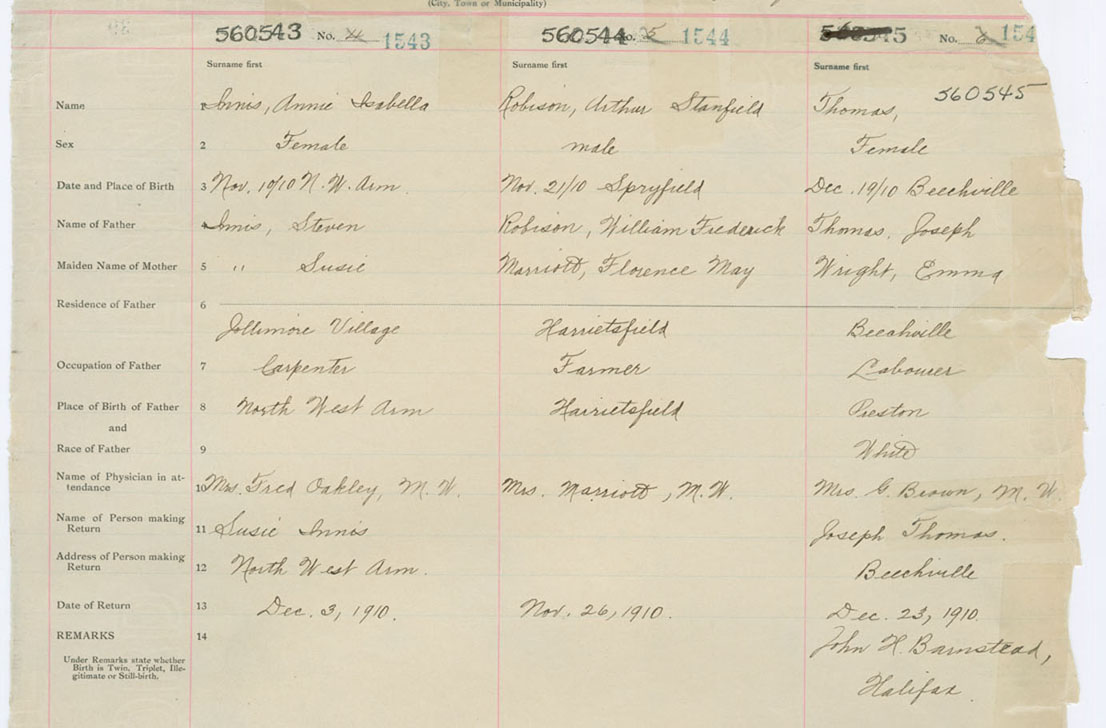 (City, Town or Municipality)
560543 No. 1543 560544 No. 1544 No. 154
Surname first Surname first Surname first
560545
Name 1 Innis, Annie Isabella Robison, Arthur Stanfield Thomas,
Sex 2 Female male Female
Date and Place of Birth 3 Nov. 19/10 N. W. Arm. Nov. 21/10 Spryfield Dec. 19/10 Beechville
Name of Father 4 Innis, Steven Robison, William Frederick Thomas, Joseph
Maiden Name of Mother 5 " Susie Marriott, Florence May Wright, Emma
Residence of Father 6
Jollimore Village Harrietsfield Beechville
Occupation of Father 7 Carpenter Farmer Labourer
Place of Birth of Father 8 North West Arm Harrietsfield Preston
and
Race of Father 9 White
Name of Physician in at-
tendance 10 Mrs. Fred Oakley, M. W. Mrs. Marriott, M. W. Mrs. G. Brown, M. W.
Name of Person making
Return 11 Susie Innis Joseph Thomas.
Address of Person making
Return 12 North West Arm. Beechville
Date of Return 13 Dec. 3, 1910. Nov. 26, 1910. Dec. 23, 1910.
REMARKS 14 John H. Barnstead,
Under Remarks state whether
Birth is Twin, Triplet, Ille-
gitimate or Still-birth.
Halifax